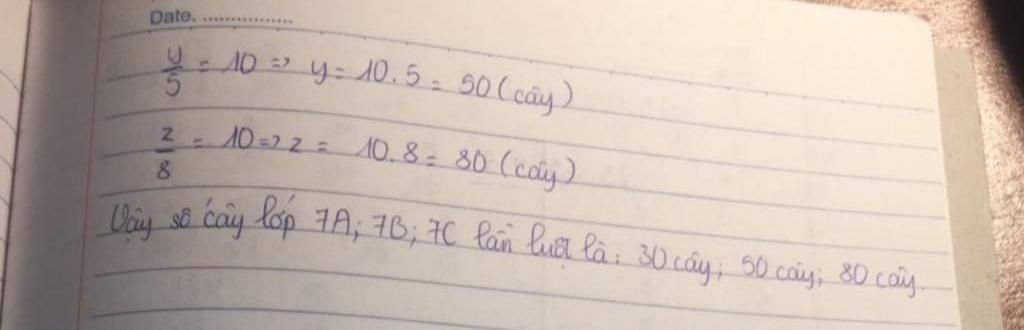 Date. ...............
y/5 = 10 => y = 10.5 = 50 (cây)
z/8 = 10 => z = 10.8 = 80 (cây)
Vậy số cây lớp 7A; 7B; 7C lần lượt là: 30 cây; 50 cây; 80 cây.